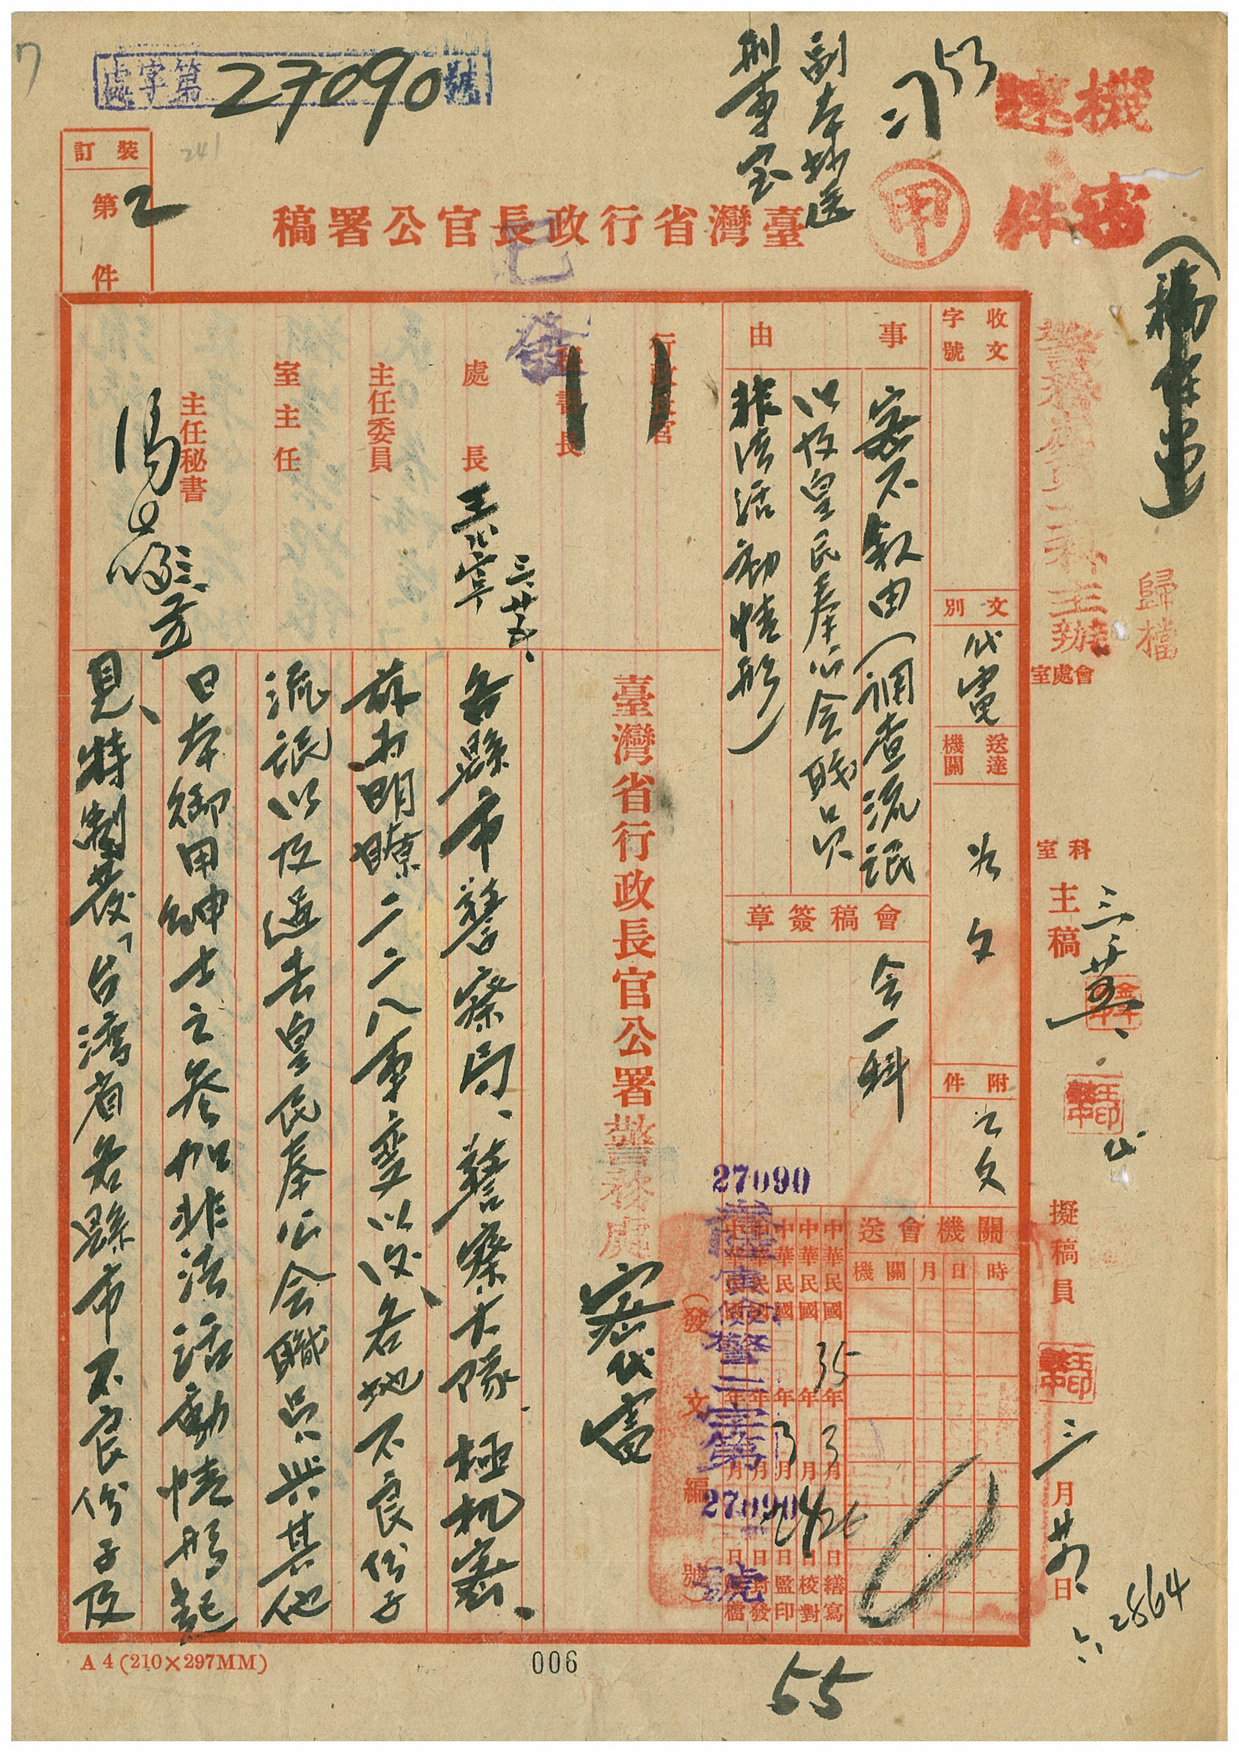 機密
速件
處字第27090號
副本抄送
甲
裝訂
第2件
臺灣省行政長官公署稿
已發
歸檔
收文字號
文別
代電
送達機關
如文
附件
如文
事由
密不敘由(調查流氓
以及皇民奉公會職員
非法活動情形)
會稿簽章
會一科
行政長官
秘書長
處長
主任委員
室主任
主任秘書
會處室
科室
主稿
擬稿員
三月廿五日
送會機關
機關月日時
中華民國35年3月26日繕寫
中華民國年月日校對
中華民國年月日監印
中華民國年月日封發
中華民國年月日歸檔
(發文編號)
27090
27090
號
臺灣省行政長官公署警務處 密代電
各縣市警察局、警察大隊、極機密、
茲為明瞭二二八事變以後、各地不良份子
流氓以及過去皇民奉公會職員、與其他
日本御用紳士之參加非法活動情形起
見、特制發「台灣省各縣市不良份子及
A4(210×297MM)
006
55
2864